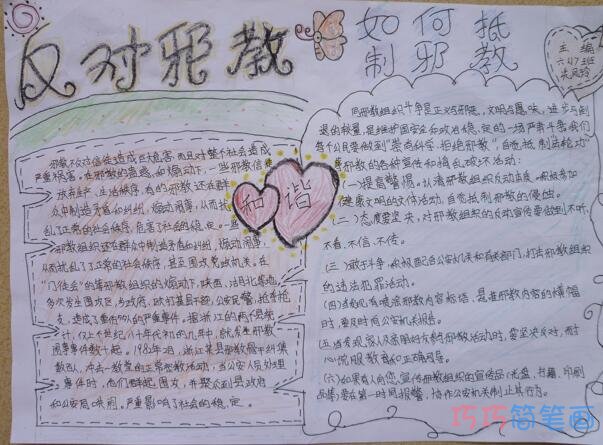 反对邪教
如何抵
制邪教
主编
六(1)班
和谐
邪教不仅对信徒造成巨大危害,而且对整个社会造成
严重损害。在邪教的蛊惑、煽动下,一些邪教信徒
放弃生产、生活秩序,有的邪教还在群
众中制造矛盾和纠纷,煽动闹事,从而扰
乱了正常的社会秩序,危害了社会的稳定。一些
邪教组织还在群众中制造矛盾和纠纷,煽动闹事,
从而扰乱了正常的社会秩序,甚至围攻党政机关。在
"门徒会"的等邪教组织的煽动下,陕西、
多次发生围攻区、乡政府,殴打基层干部、公安民警,抢夺枪
支,造成了重伤
计,仅上个世纪八十年代初的几年中,就发生邪教
闹事事件数十起。1982年2月,浙江某县邪教骨干纠集
数百人,冲击一教堂的正常宗教活动,当公安人员处理
事件时,他们
和公安局哄闹。严重影响了社会的稳定。
同邪教组织斗争是正义与邪恶,文明与愚昧,进步与倒
退的较量,是维护国家安全和政治稳定的一场严肃斗争我们
每个公民要做到"崇尚科学、拒绝邪教",自觉抵制
邪教的各种宣传和捣乱破坏活动:
(一)提高警惕。认清邪教组织反动本质,积极参加
健康文明的文体活动,自觉抵制邪教的侵蚀。
(二)态度要坚决,对邪教组织的反动宣传要做到不听、
不看、不信、不传。
(三)敢于斗争,积极配合公安机关和有关部门,打击邪教组织
的违法犯罪活动。
(四)当发现有喷涂邪教内容标语,悬挂邪教内容的横幅
时,要及时向公安机关报告。
(五)当发现家人及亲朋好友参与邪教活动时,要坚决反对,耐
心说服教育和正确引导。
(六)如果有人向您宣传邪教组织的宣传品(光盘、书籍、印刷
品等)要在第一时间报警,协助公安机关制止其行为。
巧巧简笔画